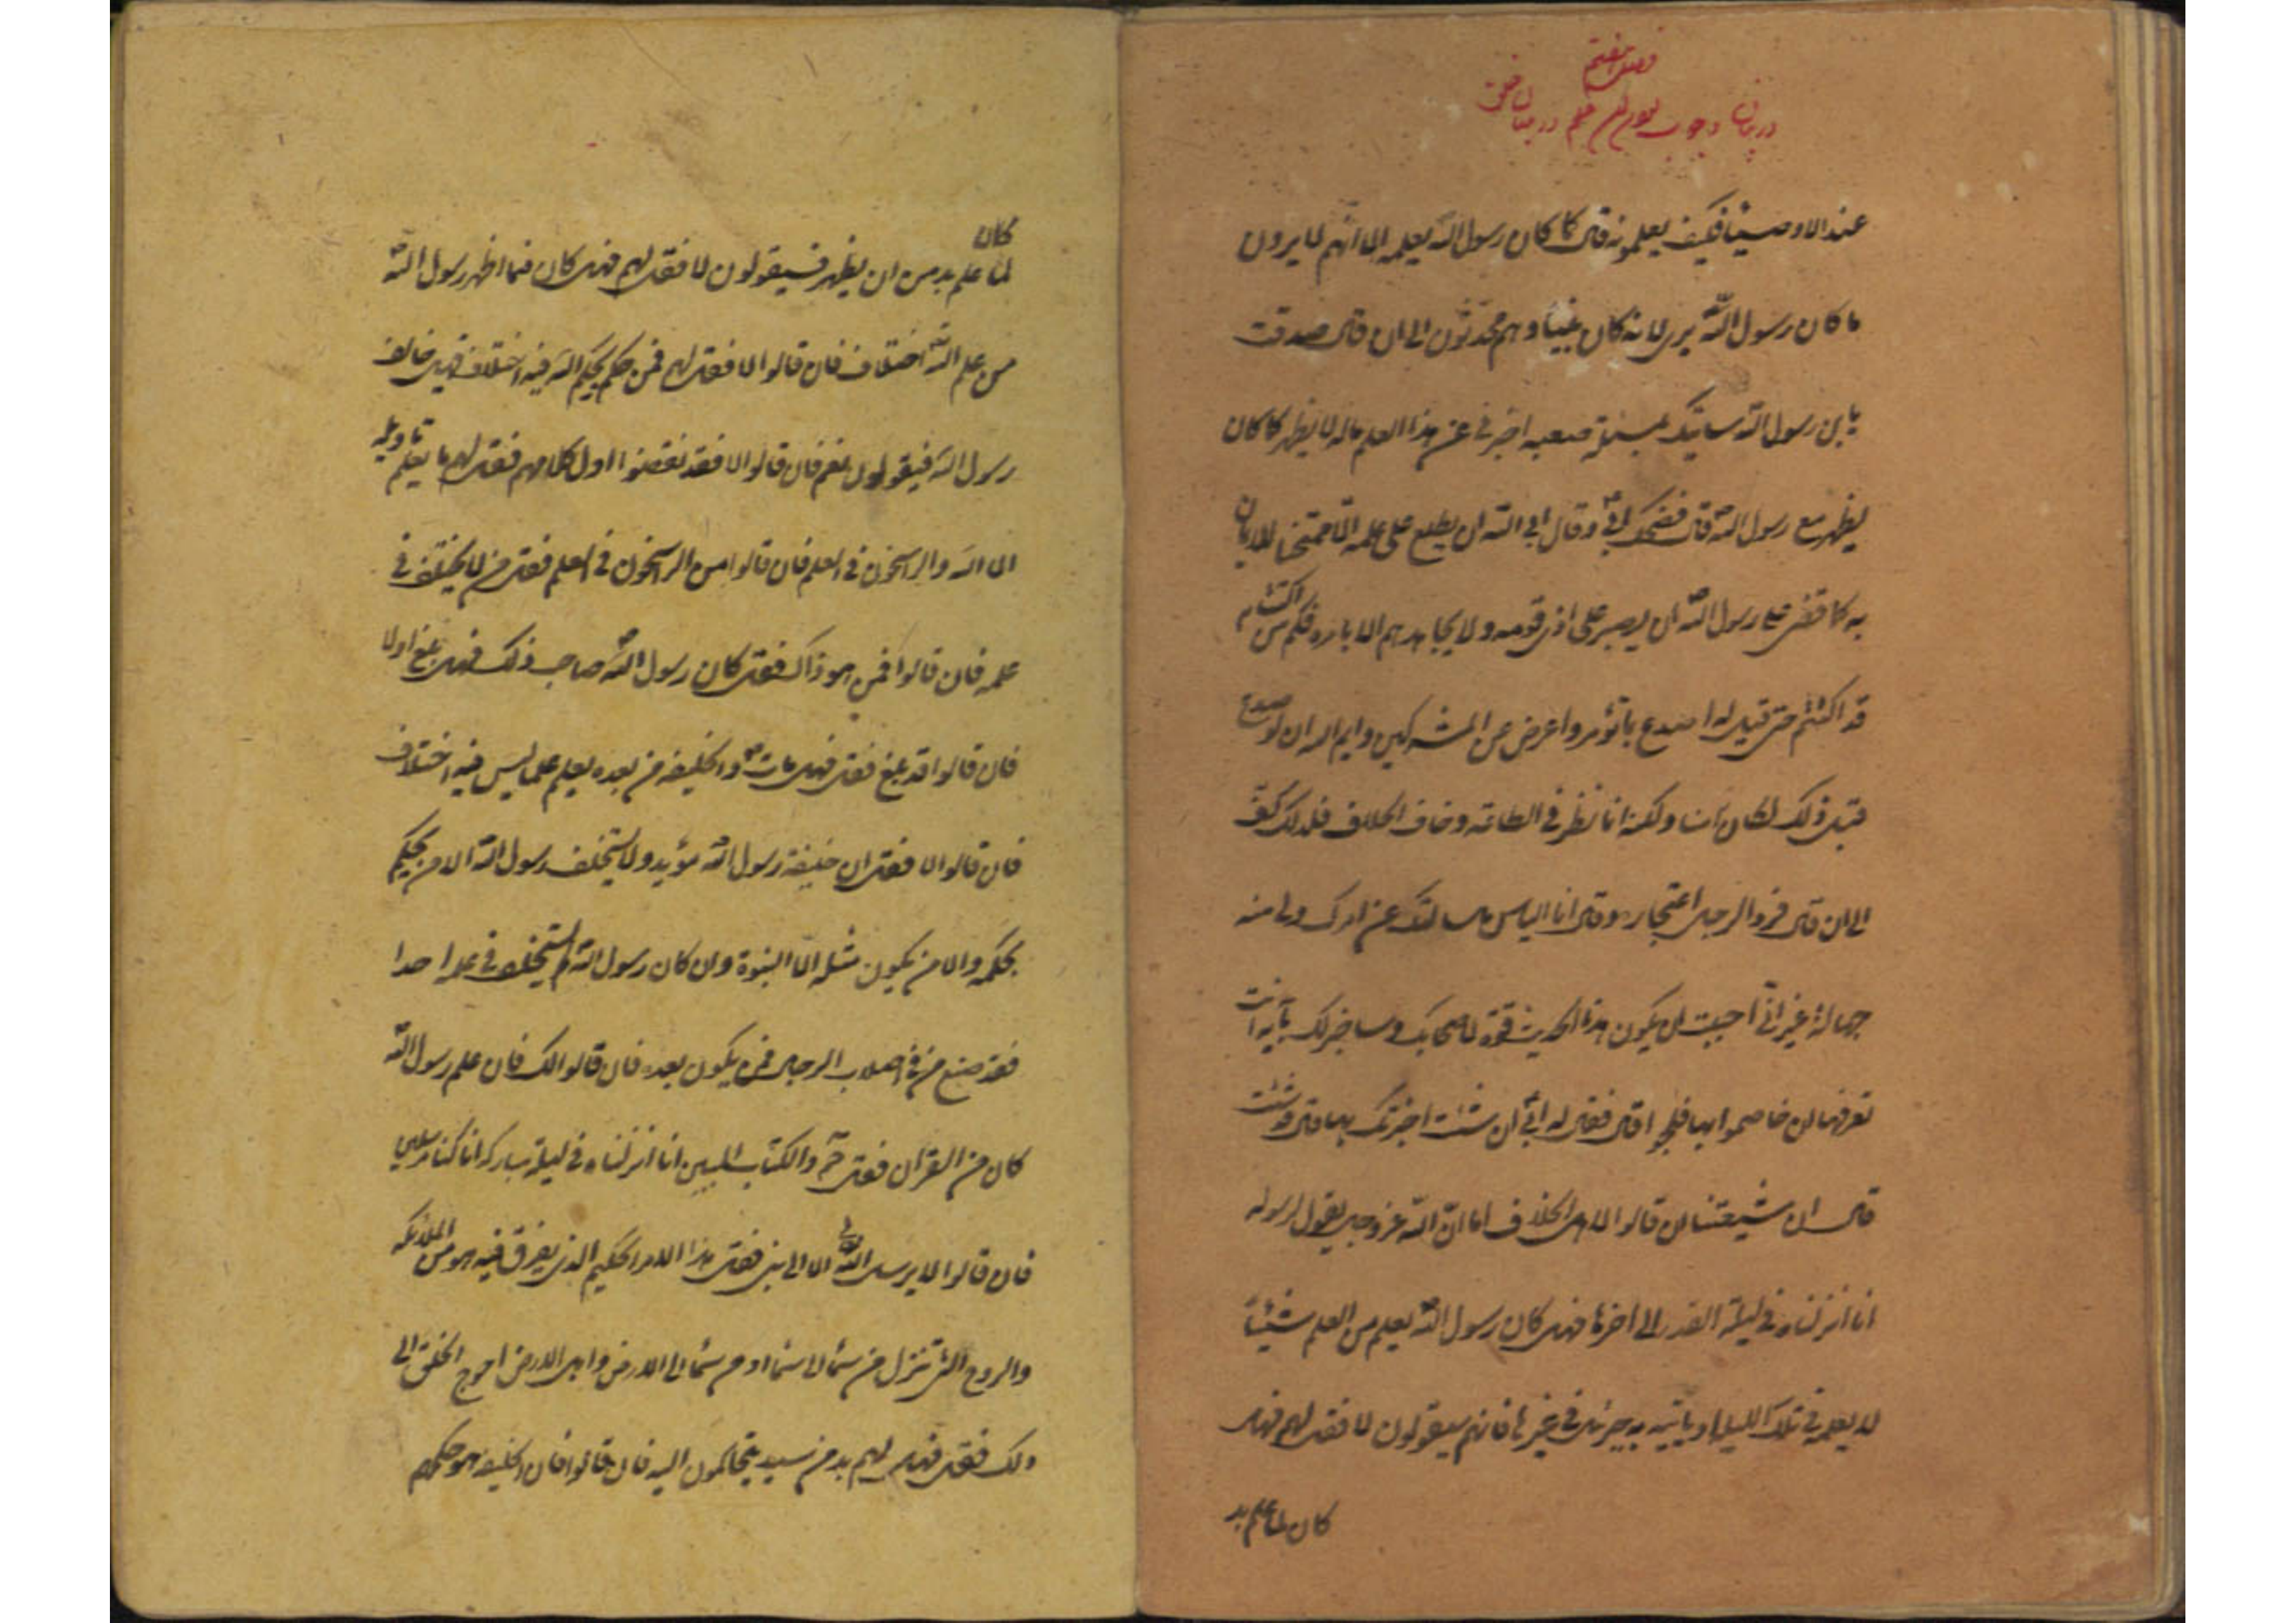 فصل هفتم
در بیان وجوب بودن عالم در میان خلق
عند الاوصیا فکیف یعلمونه قال کما کان رسول الله یعلمه الا انهم لا یرون
ما کان رسول الله یری لانه کان نبیا و هم محدثون الی ان قال صدقت
یابن رسول الله سآتیک بمسئلة صعبة اخبرنی عن هذا العلم ماله لا یظهر کما کان
یظهر مع رسول الله قال فضحک ابی و قال ابی الله ان یطلع علی علمه الا ممتحنا للایمان
به کما قضی علی رسول الله ان یصبر علی اذی قومه و لا یجاهدهم الا بامره فکم من اکتتام
قد اکتتم حتی قیل له اصدع بما تؤمر و اعرض عن المشرکین و ایم الله ان لو صدع
قبل ذلک لکان آمنا و لکنه انما نظر فی الطاعة و خاف الخلاف فلذلک کف
الی ان قال فرد الرجل اعتجاره و قال انا الیاس ما سالتک عن امرک ولی منه
جهالة غیر انی احببت ان یکون هذا الحدیث قوة لاصحابک و ساخبرک بآیة انت
تعرفها ان خاصموا بها فلجوا قال فقال له ابی ان شئت اخبرتک بها قال قد شئت
قال ان شیعتنا ان قالوا لاهل الخلاف لنا ان الله عز و جل یقول لرسوله
انا انزلناه فی لیلة القدر الی اخرها فهل کان رسول الله یعلم من العلم شیئا
لا یعلمه فی تلک اللیلة او یاتیه به جبرئیل فی غیرها فانهم سیقولون لا فقل لهم فهل
کان لما علم بد
کان
لما علم بد من ان یظهر فسیقولون لا فقل لهم فهل کان فیما اظهر رسول الله
من علم الله اختلاف فان قالوا لا فقل لهم فمن حکم بحکم الله فیه اختلاف فهل خالف
رسول الله فیقولون نعم فان قالوا لا فقد نقضوا اول کلامهم فقل لهم ما یعلم تاویله
الا الله و الراسخون فی العلم فان قالوا من الراسخون فی العلم فقل من لا یختلف فی
علمه فان قالوا فمن هو ذاک فقل کان رسول الله صاحب ذلک فهل بلغ او لا
فان قالوا قد بلغ فقل فهل مات و الخلیفة من بعده یعلم علما لیس فیه اختلاف
فان قالوا لا فقل ان خلیفة رسول الله مؤید و لا یستخلف رسول الله الا من یحکم
بحکمه و الا من یکون مثله الا النبوة و ان کان رسول الله لم یستخلف فی علمه احدا
فقد ضیع من فی اصلاب الرجال ممن یکون بعده فان قالوا لک فان علم رسول الله
کان من القران فقل حم و الکتاب المبین انا انزلناه فی لیلة مبارکة انا کنا مرسلین
فان قالوا لا یرسل الله تعالی الا الی نبی فقل هذا الامر الحکیم الذی یفرق فیه هو من الملائکة
و الروح التی تنزل من سماء الی سماء او من سماء الی الارض و اهل الارض احوج الخلق الی
ذلک فقل فهل لهم بد من سید یتحاکمون الیه فان قالوا فان الخلیفة هو حکمهم